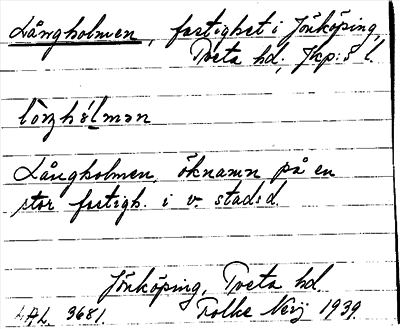 Långholmen, fastighet i Jönköping,
Tveta hd, Jkp:s l.
Långholmen, öknamn på en
stor fastigh. i v. stadsd.
Jönköping, Tveta hd.
3681. Folke 1939.